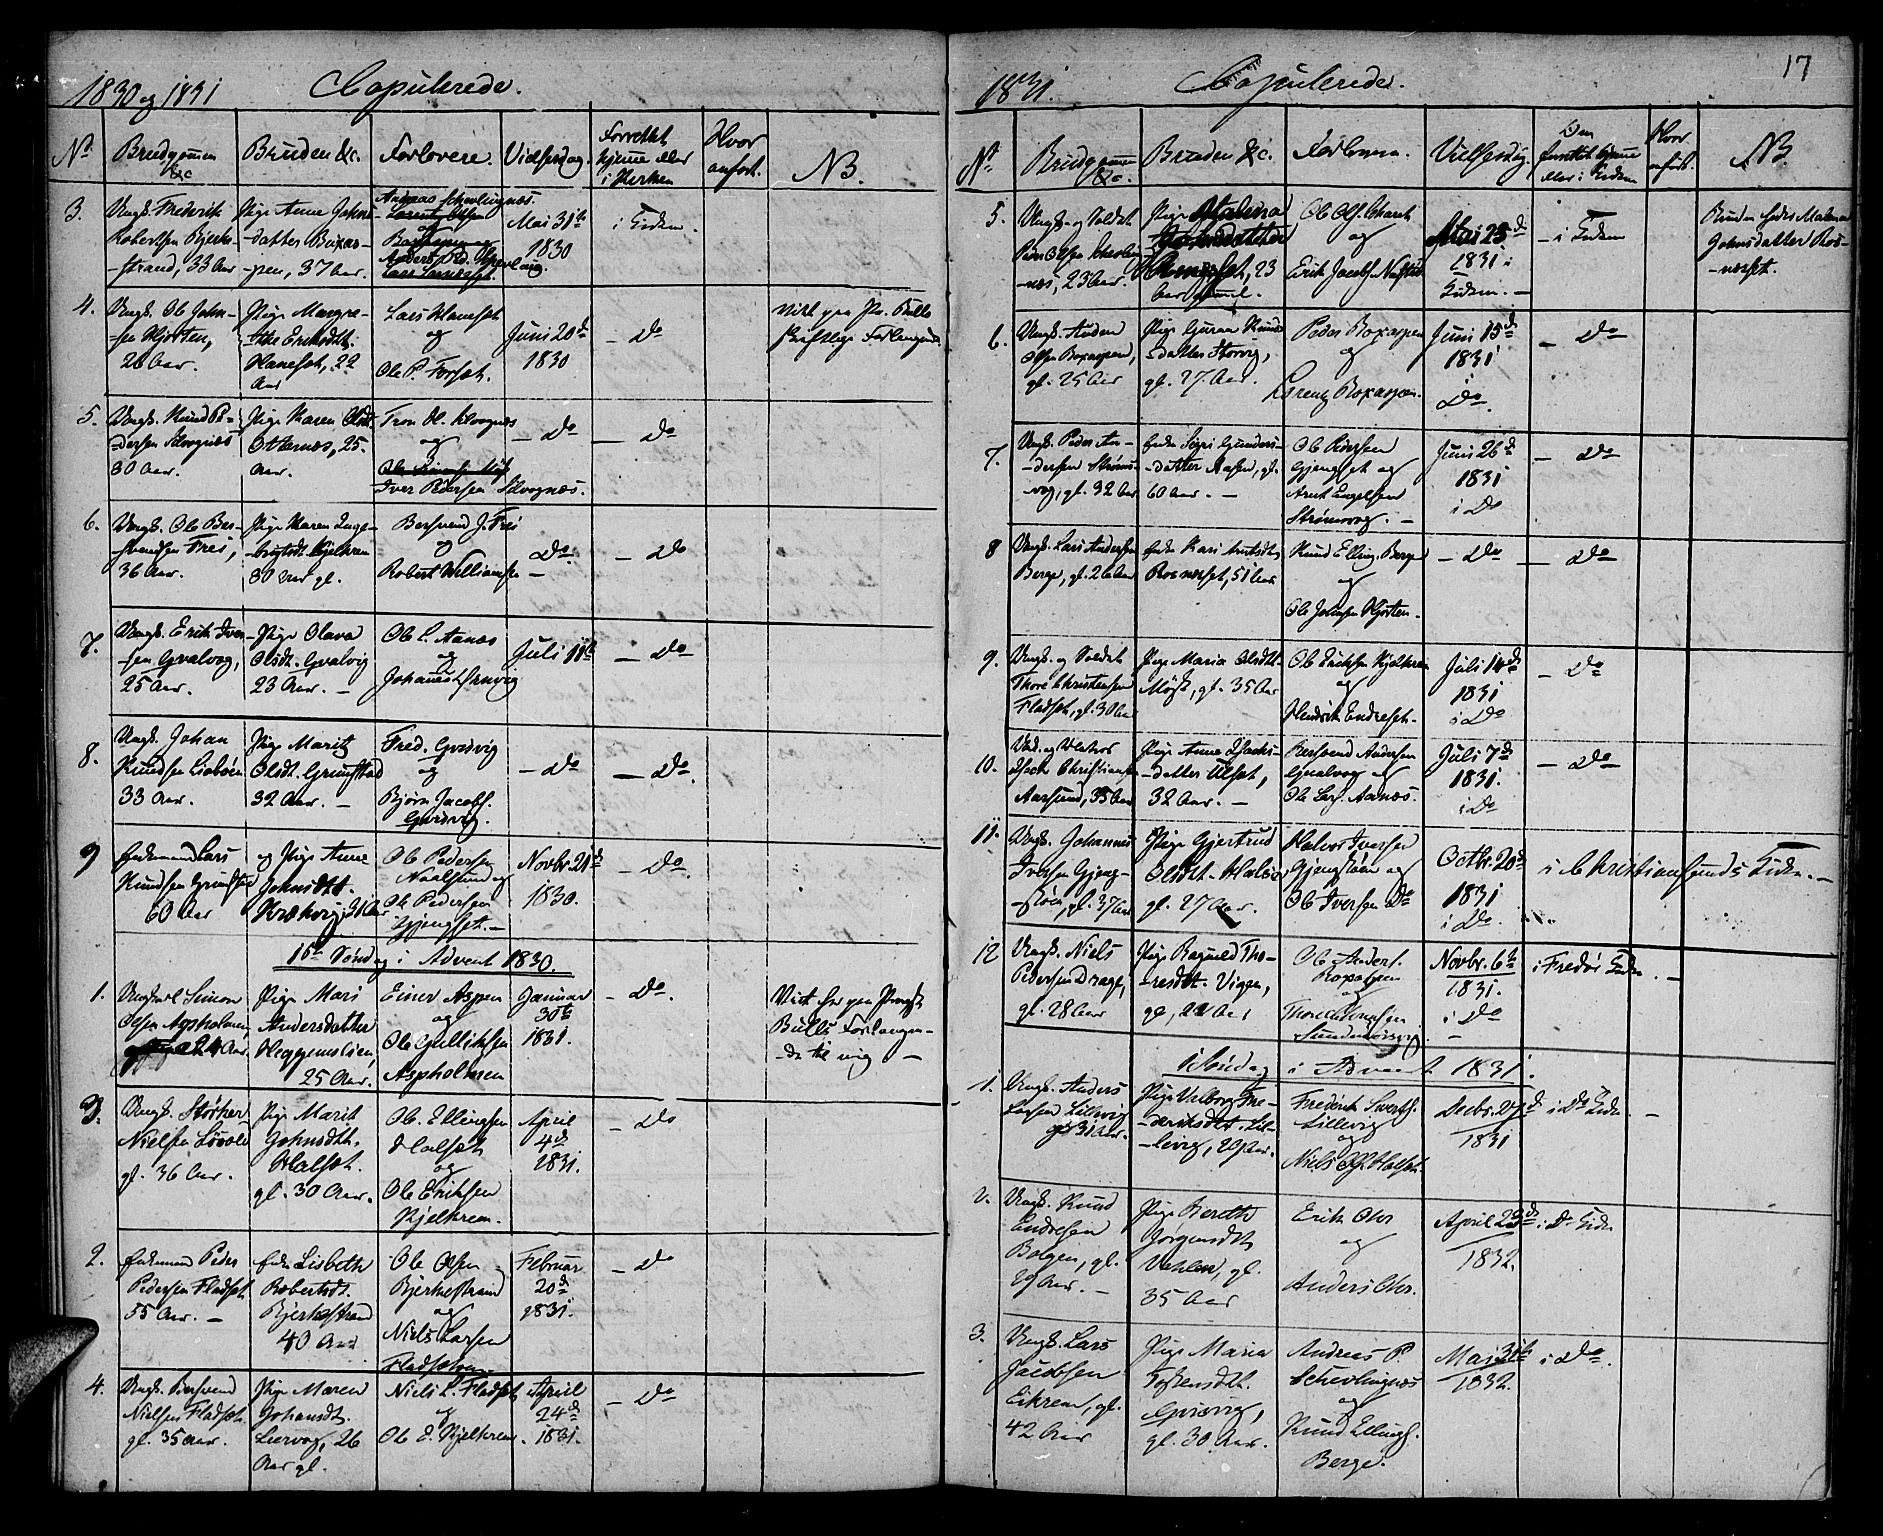 1830 og 1831 Copulerede.
No Brudgommen &c Bruden &c. Forlovere. Vielsesdag. Forrettet hjemme eller i Kirken Hvor anført. NB.
3. Ungk. Frederik
Robertsen Bjerke-
strand, 33 Aar
Pige Anne Johns-
datter Boxas-
pen, 37 Aar.
Mai 31te
1830
i Kirken.
4. Ungk. Ole John-
sen Hjorten,
26 Aar.
Pige Margre-
the Eriksdtr.
Hanesæt, 22
Aar
Lars Hanesæt
og
Ole P. Forsæt.
Juni 20de
1830
- Do
5. Ungk. Knud Pe-
dersen Kvognæs
30 Aar.
Pige Karen Olsdt.
Otternæs, 25
Aar.
og
Iver Pedersen Kvognæs.
- Do
- Do
6. Ungk. Ole Ber-
svendsen Frei,
36 Aar.
Pige Karen Inge-
brigtsdt. Kjelkren
30 Aar gl.
Bersvend J. Frei
og
Robert Williamsen
- Do
- Do
7. Ungk. Erik Iver-
sen Gvalvog,
25 Aar.
Pige Olava
Olsdt. Gvalvig
23 Aar. -
Ole L. Aanæs
og
Juli 11te
- Do
8. Ungk. Johan
Knudsen Liabøen
33 Aar.
Pige Marit
Olsdt. Grimstad
32 Aar. -
Fred. Grisvig
og
Bjørn Jacobs.
Grisvig.
- Do
- Do.
9 Enkemand Lars
Knudsen Grimstad
60 Aar
og Pige Anne
Johnsdtr.
Krækvig, 31 Aar
Ole Pedersen
Naalsund og
Ole Pedersen
Gjengset. -
Novbr. 21de
1830.
- Do.
1ste Søndag i Advent 1830.
1. Ungkarl Simon
Olsen Aspholmen
24 Aar.
Pige Mari
Andersdatter
Heggemslien,
25 Aar.
Einer Aspen
og
Ole Gullikssen
Aspholmen
Januar
30te
1831.
- Do.
Viet her paa Provst
Bulls Forlangen-
de til mig -
3. Ungk. Størker
Nielsen Løvold
gl. 36 Aar.
Pige Marit
Johnsdtr.
Halset.
gl. 30 Aar.
Ole Ellingsen
Halset
og
Ole Eriksen
Kjelkrem.
April
4de
1831.
- Do
2. Enkemand Peder
Pedersen Fladset
55 Aar. -
Enke Lisbeth
Robertsdt.
Bjerkestrand
40 Aar
Ole Olsen
Bjerkestrand
og
Niels Larsen
Fladset
Februar
20de
1831.
- Do
4. Ungk. Bersvend
Nielsen Fladset.
gl. 35 Aar.
Pige Maren
Johansdt.
Leervog, 26
Aar gl.
Niels L. Fladset
og
Ole E. Kjelkrem.
April
24de
1831.
- Do
1831. Copulerede. 17
No Brudgommen &c. Bruden &c. Forlovere. Vielsesdag Om forrettet hjemme eller i Kirken Hvor anført. NB
5. Ungk. og Soldat
Peder Olsen
23 Aar.
Pige Malena
23
Aar gaml.
og
Erik Jacobs.
Mai 23de
1831 i
Kirken. -
- i Kirken
Bruden hedder Malena
Johnsdatter Ros-
næset.
6. Ungk. Anders
Olsen Boxaspen,
gl. 25 Aar
Pige Guraa Knuds-
datter Storvig,
gl. 27 Aar.
Peder Boxaspen
og
Lorentz Boxaspen.
Juni 15de
1831
i Do.
- Do
7. Ungk. Peder An-
dersen Strøms-
vog, gl. 32 Aar
Enke Sigri Gunders-
datter Aasen, gl.
60 Aar. -
Ole Pedersen
Gjengset og
Arnt Engelsen
Strømsvog. -
Juni 26de
1831
i Do
- Do
8 Ungk. Lars Andersen
Berge, gl. 26 Aar
Enke Kari Arntsdt.
Rosnæset, 51 Aar
Knud Elling. Berge
og
Ole Johnsen Hjorten -
- Do
- Do
9. Ungk. og Soldat
Thore Christensen
Fladset, gl. 30 Aar
Pige Maria Olsdtr.
Møst, gl. 35 Aar
Ole Eriksen Kjelkrem
og
Hendrik Endreset -
Juli 14de
1831
i Do
- Do
10. Isach Christians.
Aarsund, 35 Aar
Pige Anne Isachs-
datter Ulset,
32 Aar. -
Bersvend Andersen
Gvalvog og
Ole Lars. Aanæs.
Juli 7de
1831.
i Do
- Do
11. Ungk. Johannes
Iversen Gjeng-
støen, gl. 37 Aar
Pige Gjertrud
Olsdtr. Halsen
gl. 27 Aar.
Halvor Iversen
Gjengstøen og
Ole Iversen Do
Octbr. 20de
1831
i Do.
i Christiansunds Kirke. -
12 Ungk. Niels
Pedersen Drage,
gl. 28 Aar
Pige Ragnild Tho-
resdtr. Vigen,
gl. 22 Aar
Ole Anders.
og
Novbr. 6te
1831.
i Do
-
i Fredø Kirke -
1 Søndag i Advent 1831.
1. Ungk. Anders
Larsen Lillevig
gl 31 Aar.
Pige Valborg Fre-
deriksdtr. Lil-
levig, 20 Aar.
Frederik Sivertss.
Lillevig
og
Niels Halset.
Decbr. 27de
1831
i Do Kirke -
2. Ungk. Knud
Endresen
Bolgen, gl.
29 Aar. -
Pige Berethe
Jørgensdt
Vahlen, gl.
35 Aar
Erik Ohr
og
Anders Ohr.
April 23de
1832.
i Do Kirke
3. Ungk. Lars
Jacobsen
Eikrem, gl.
42 Aar
Pige Maria
Tostensdt.
Grisvig,
gl. 30 Aar.
Andreas P.
Schevlingnæs
og
Knud Ellings.
Berge.
Mai 31te
1832.
i Do.